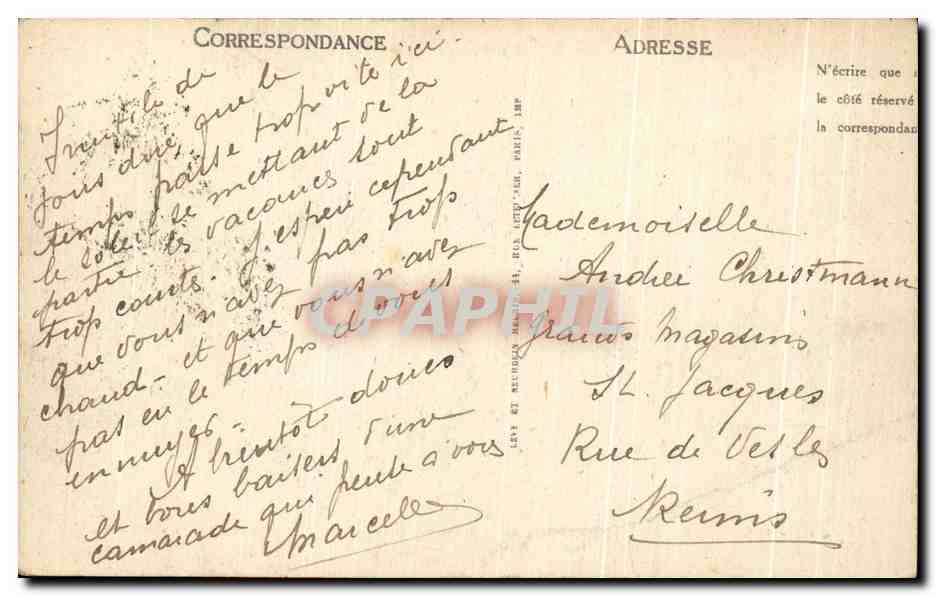 CORRESPONDANCE
Inutile de
vous dire que le
temps passe trop vite ici
le soleil se mettant de la
partie les vacances sont
trop courtes. J'espère cependant
que vous n'avez pas trop
chaud - et que vous n'avez
pas eu le temps d vous
ennuyer.
A bientôt donc
et bons baisers d'une
camarade qui pense à vous
Marcelle
LEVY ET NEURDEIN RÉUNIS, 44, RUE LETELLIER, PARIS, IMP
ADRESSE
N'écrire que
le côté réservé
la correspondan
Mademoiselle
Andrée Christmann
Grands Magasins
St. Jacques
Rue de Vesles
Reims
CPAPHIL